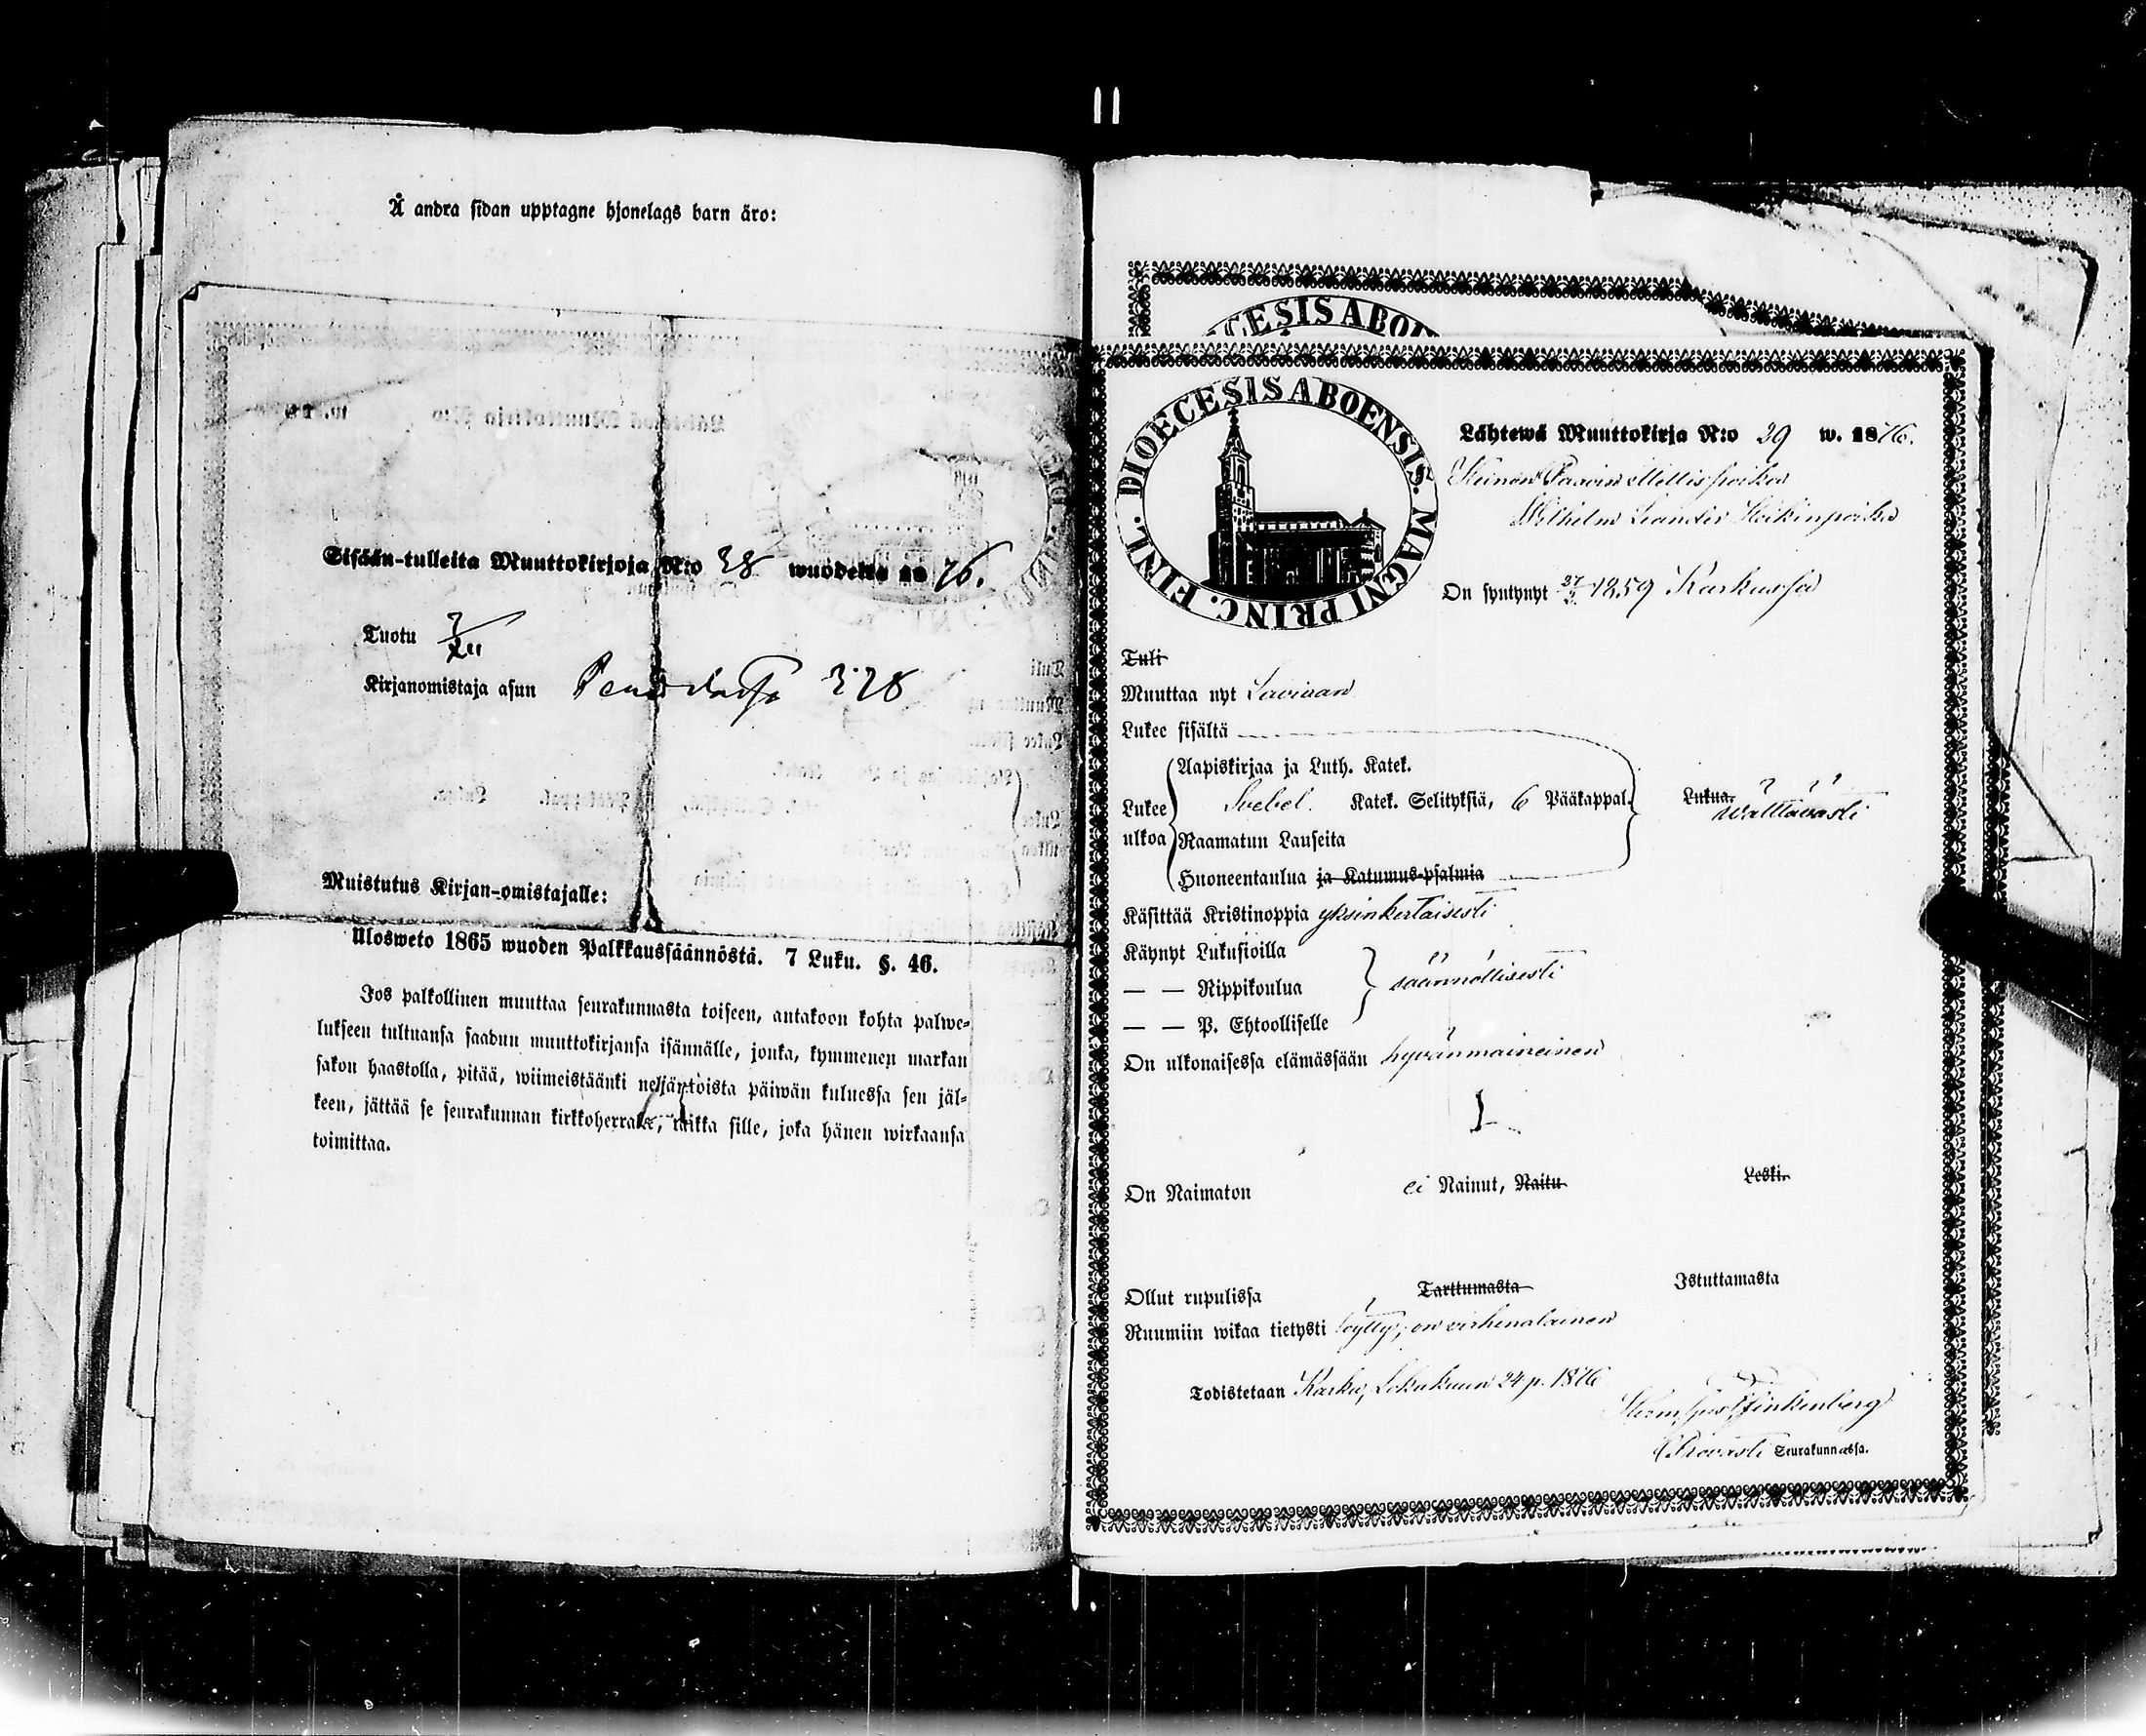 Å andra sidan upptagne hjonelags barn äro:
Sisään-tulleita Muuttokirjoja N:o 38 wuodelta 1876.
Tuotu 7/XII
Kirjanomistaja asuu 228
Muistutus Kirjan-omistajalle:
Ulosweto 1865 wuoden Palkkaussäännöstä. 7 Luku. §. 46.
Jos palkollinen muuttaa seurakunnasta toiseen, antakoon kohta palwe-
lukseen tultuansa saadun muuttokirjansa isännälle, jonka, kymmenen markan
sakon haastolla, pitää, wiimeistäänki neljäntoista päiwän kuluessa sen jäl-
keen, jättää se seurakunnan kirkkoherralle, taikka sille, joka hänen wirkaansa
toimittaa.
CESIS ABOE
DIOECESIS ABOENSIS. MAGNI PRINC. FINL.
Lähtewä Muuttokirja N:o 29 w. 1876.
Heinoon Paavin Mellis poika
Wilhelm Leander Heikinpoika
On syntynyt 27/3 1859 Karkussa
Tuli
Muuttaa nyt Laviaan
Lukee sisältä
Aapiskirjaa ja Luth. Katek.
Lukee ulkoa
Svebel. Katek. Selityksiä, 6 Pääkappal.
Lukua.
wälttäwästi
Raamatun Lauseita
Huoneentaulua ja Katumus-psalmia
Käsittää Kristinoppia yksinkertaisesti
Käynyt Lukusioilla
— — Rippikoulua
säännöllisesti
— — P. Ehtoolliselle
On ulkonaisessa elämässään hyvänmaineinen
On Naimaton ei Nainut, Naitu Leski.
Ollut rupulissa Tarttumasta Istuttamasta
Ruumiin wikaa tietysti löytty, on virhenalainen
Todistetaan Karku, Lokakuun 24 p. 1876
Herm. Gust. Zinkenberg
Provasti Seurakunnassa.